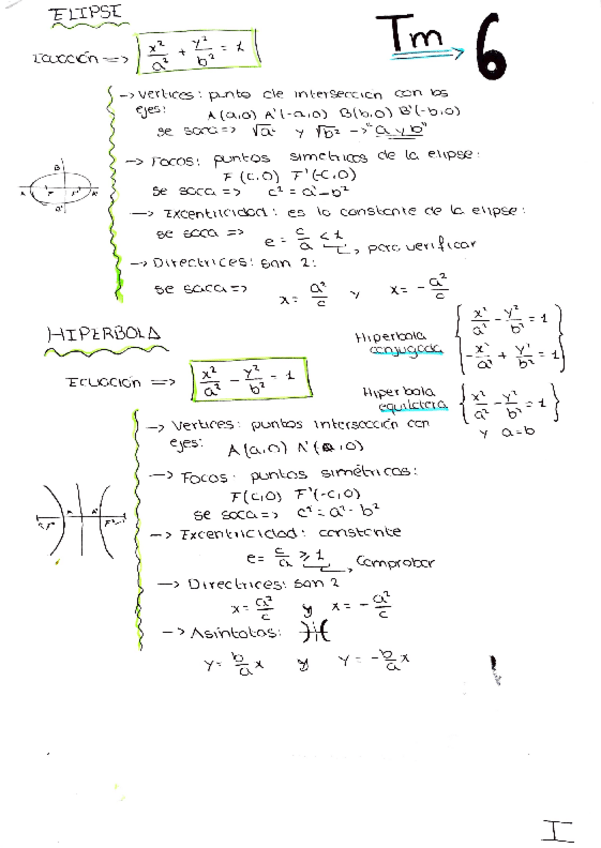 ELIPSE
Tm 6
Ecuación => x²/a² + y²/b² = 1
-> Vertices: punto de interseccion con los
ejes: A(a,0) A'(-a,0) B(b,0) B'(-b,0)
se saca => √a² y √b² -> "a y b"
-> Focos: puntos simetricos de la elipse:
F(c,0) F'(-c,0)
se saca => c² = a² - b²
-> Excentricidad: es la constante de la elipse:
se saca => e = c/a < 1, para verificar
-> Directrices: son 2:
se saca => x = a²/c y x = - a²/c
HIPERBOLA
Hiperbola conjugada { x²/a² - y²/b² = 1
- x²/a² + y²/b² = 1 }
Ecuación => x²/a² - y²/b² = 1
Hiperbola equilatera { x²/a² - y²/b² = 1 }
y a=b
-> Vertices: puntos intersección con
ejes: A(a,0) A'(-a,0)
-> Focos: puntos simétricos:
F(c,0) F'(-c,0)
se saca => c² = a² - b²
-> Excentricidad: constante
e = c/a ≥ 1, Comprobar
-> Directrices: son 2
x = a²/c y x = - a²/c
-> Asíntotas:
y = b/a x y y = - b/a x
I